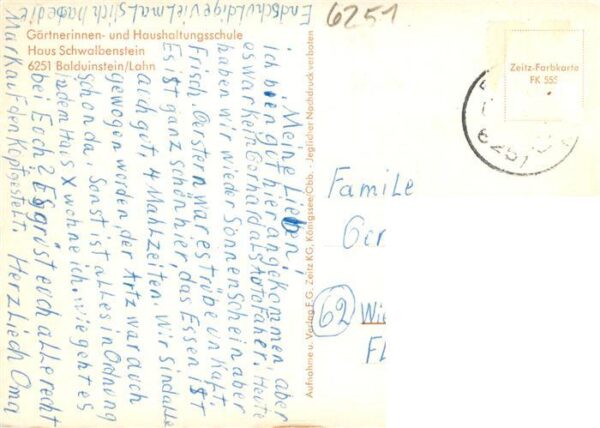 6251
Gärtnerinnen- und Haushaltungsschule
Haus Schwalbenstein
6251 Balduinstein/Lahn
Zeitz-Farbkarte
FK 555
Aufnahme u. Verlag F.G. Zeitz KG, Königssee/Obb. - Jeglicher Nachdruck verboten
Meine Lieben!
ich bien gut hier angekommen, aber
es war kein Gerhard als Autofaher. Heute
haben wir wieder Sonnenschein aber
Frisch. Gerstern war es trübe un kalt
Es ist ganz schön hier das Essen ist
auch gut. 4 Mahlzeiten. Wir sind alle
gewogen worden, der Artz war auch
schon da. Sonst ist alles in Ordnung
in dem Haus X wohne ich. wie geht es
bei Euch? Es grüst euch alle recht
Herzliech Oma
Mark auf den Kopf gestelt
Endschuldige vielmals ich habe die
Famile
Ger
62 Wi